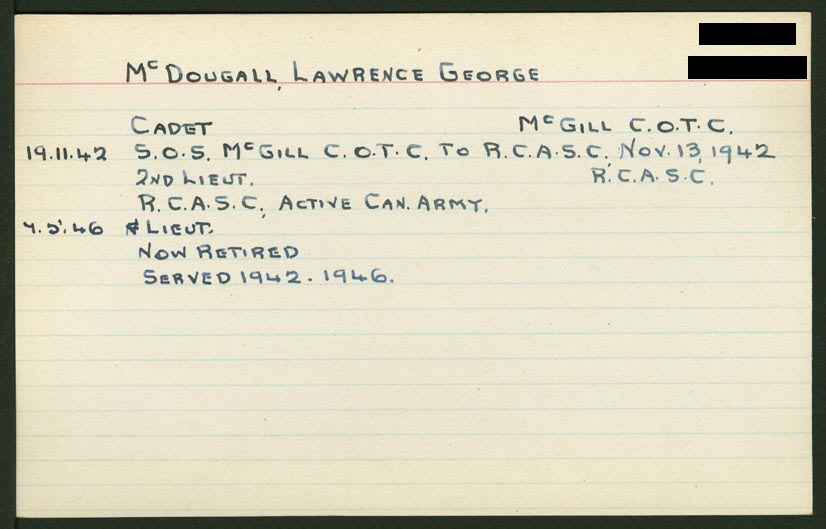 McDougall, Lawrence George
Cadet McGill C.O.T.C.
19.11.42 S.O.S. McGill C.O.T.C. to R.C.A.S.C. Nov. 13, 1942
2nd Lieut. R.C.A.S.C.
R.C.A.S.C., Active Can. Army.
7.5.46 Lieut.
Now Retired
Served 1942-1946.